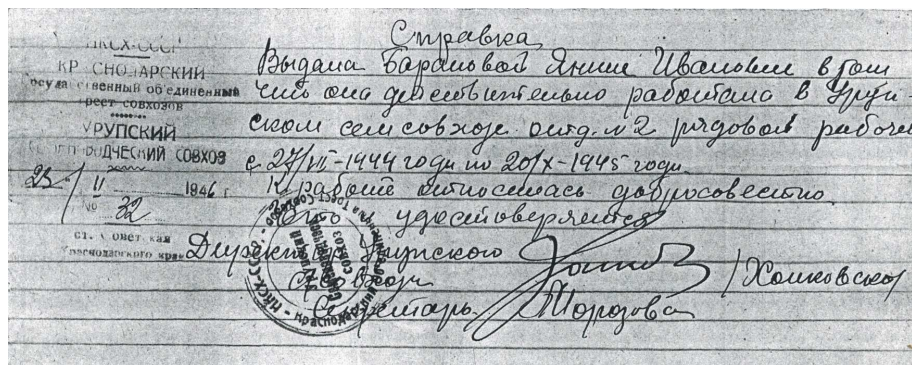 Справка
НКСХ-СССР
КРАСНОДАРСКИЙ
Государственный объединенный
трест совхозов
УРУПСКИЙ
СОВХОЗ
23/II 1946 г.
№ 32
ст. Советская
Краснодарского края
Выдана Барановой Янине Ивановне в том
что она действительно работала в Уруп-
ском семсовхозе отд. №2 рядовой рабочей
с 27/VII-1944 года по 20/X-1945 года.
К работе относилась добросовестно
удостоверяется
Директор Урупского
Секретарь Морозова